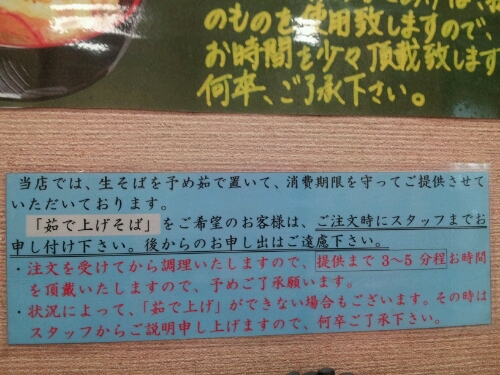 のものを使用致しますので、
お時間を少々頂載致します
何卒、ご了承下さい。
当店では、生そばを予め茹で置いて、消費期限を守ってご提供させて
いただいております。
「茹で上げそば」をご希望のお客様は、ご注文時にスタッフまでお
申し付け下さい。後からのお申し出はご遠慮下さい。
・注文を受けてから調理いたしますので、提供まで 3〜5 分程お時間
を頂戴いたしますので、予めご了承願います。
・状況によって、「茹で上げ」ができない場合もございます。その時は
スタッフからご説明申し上げますので、何卒ご了承下さい。